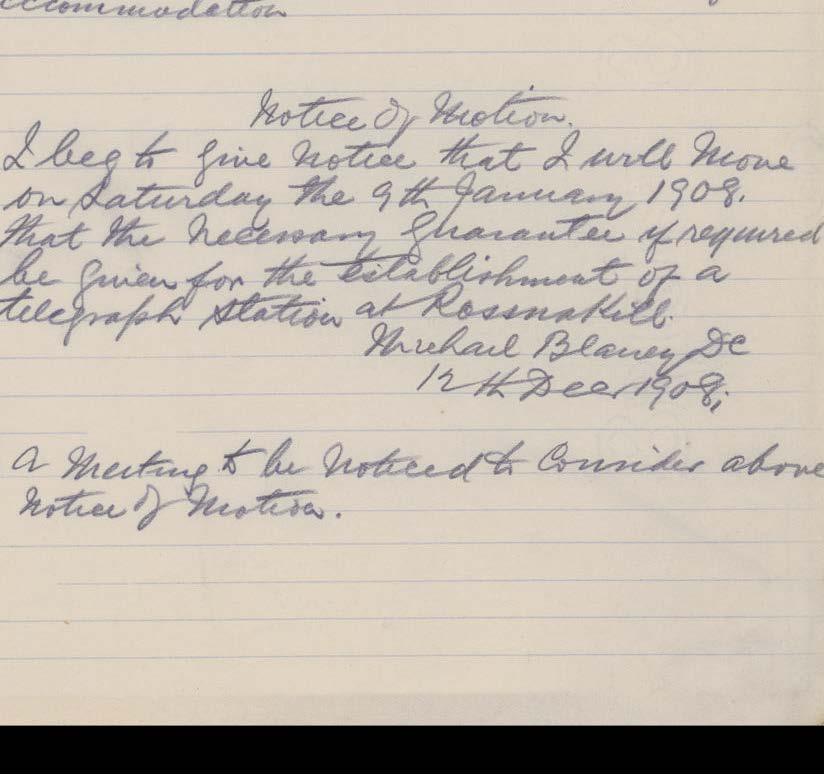 accommodation
Notice of Motion.
I beg to give notice that I will move
on Saturday the 9th January 1908.
that the necessary guarantee if required
be given for the establishment of a
telegraph station at Rossnakill.
Michael Blaney DC
12th Decr 1908;
A Meeting to be noticed to Consider above
Notice of Motion.